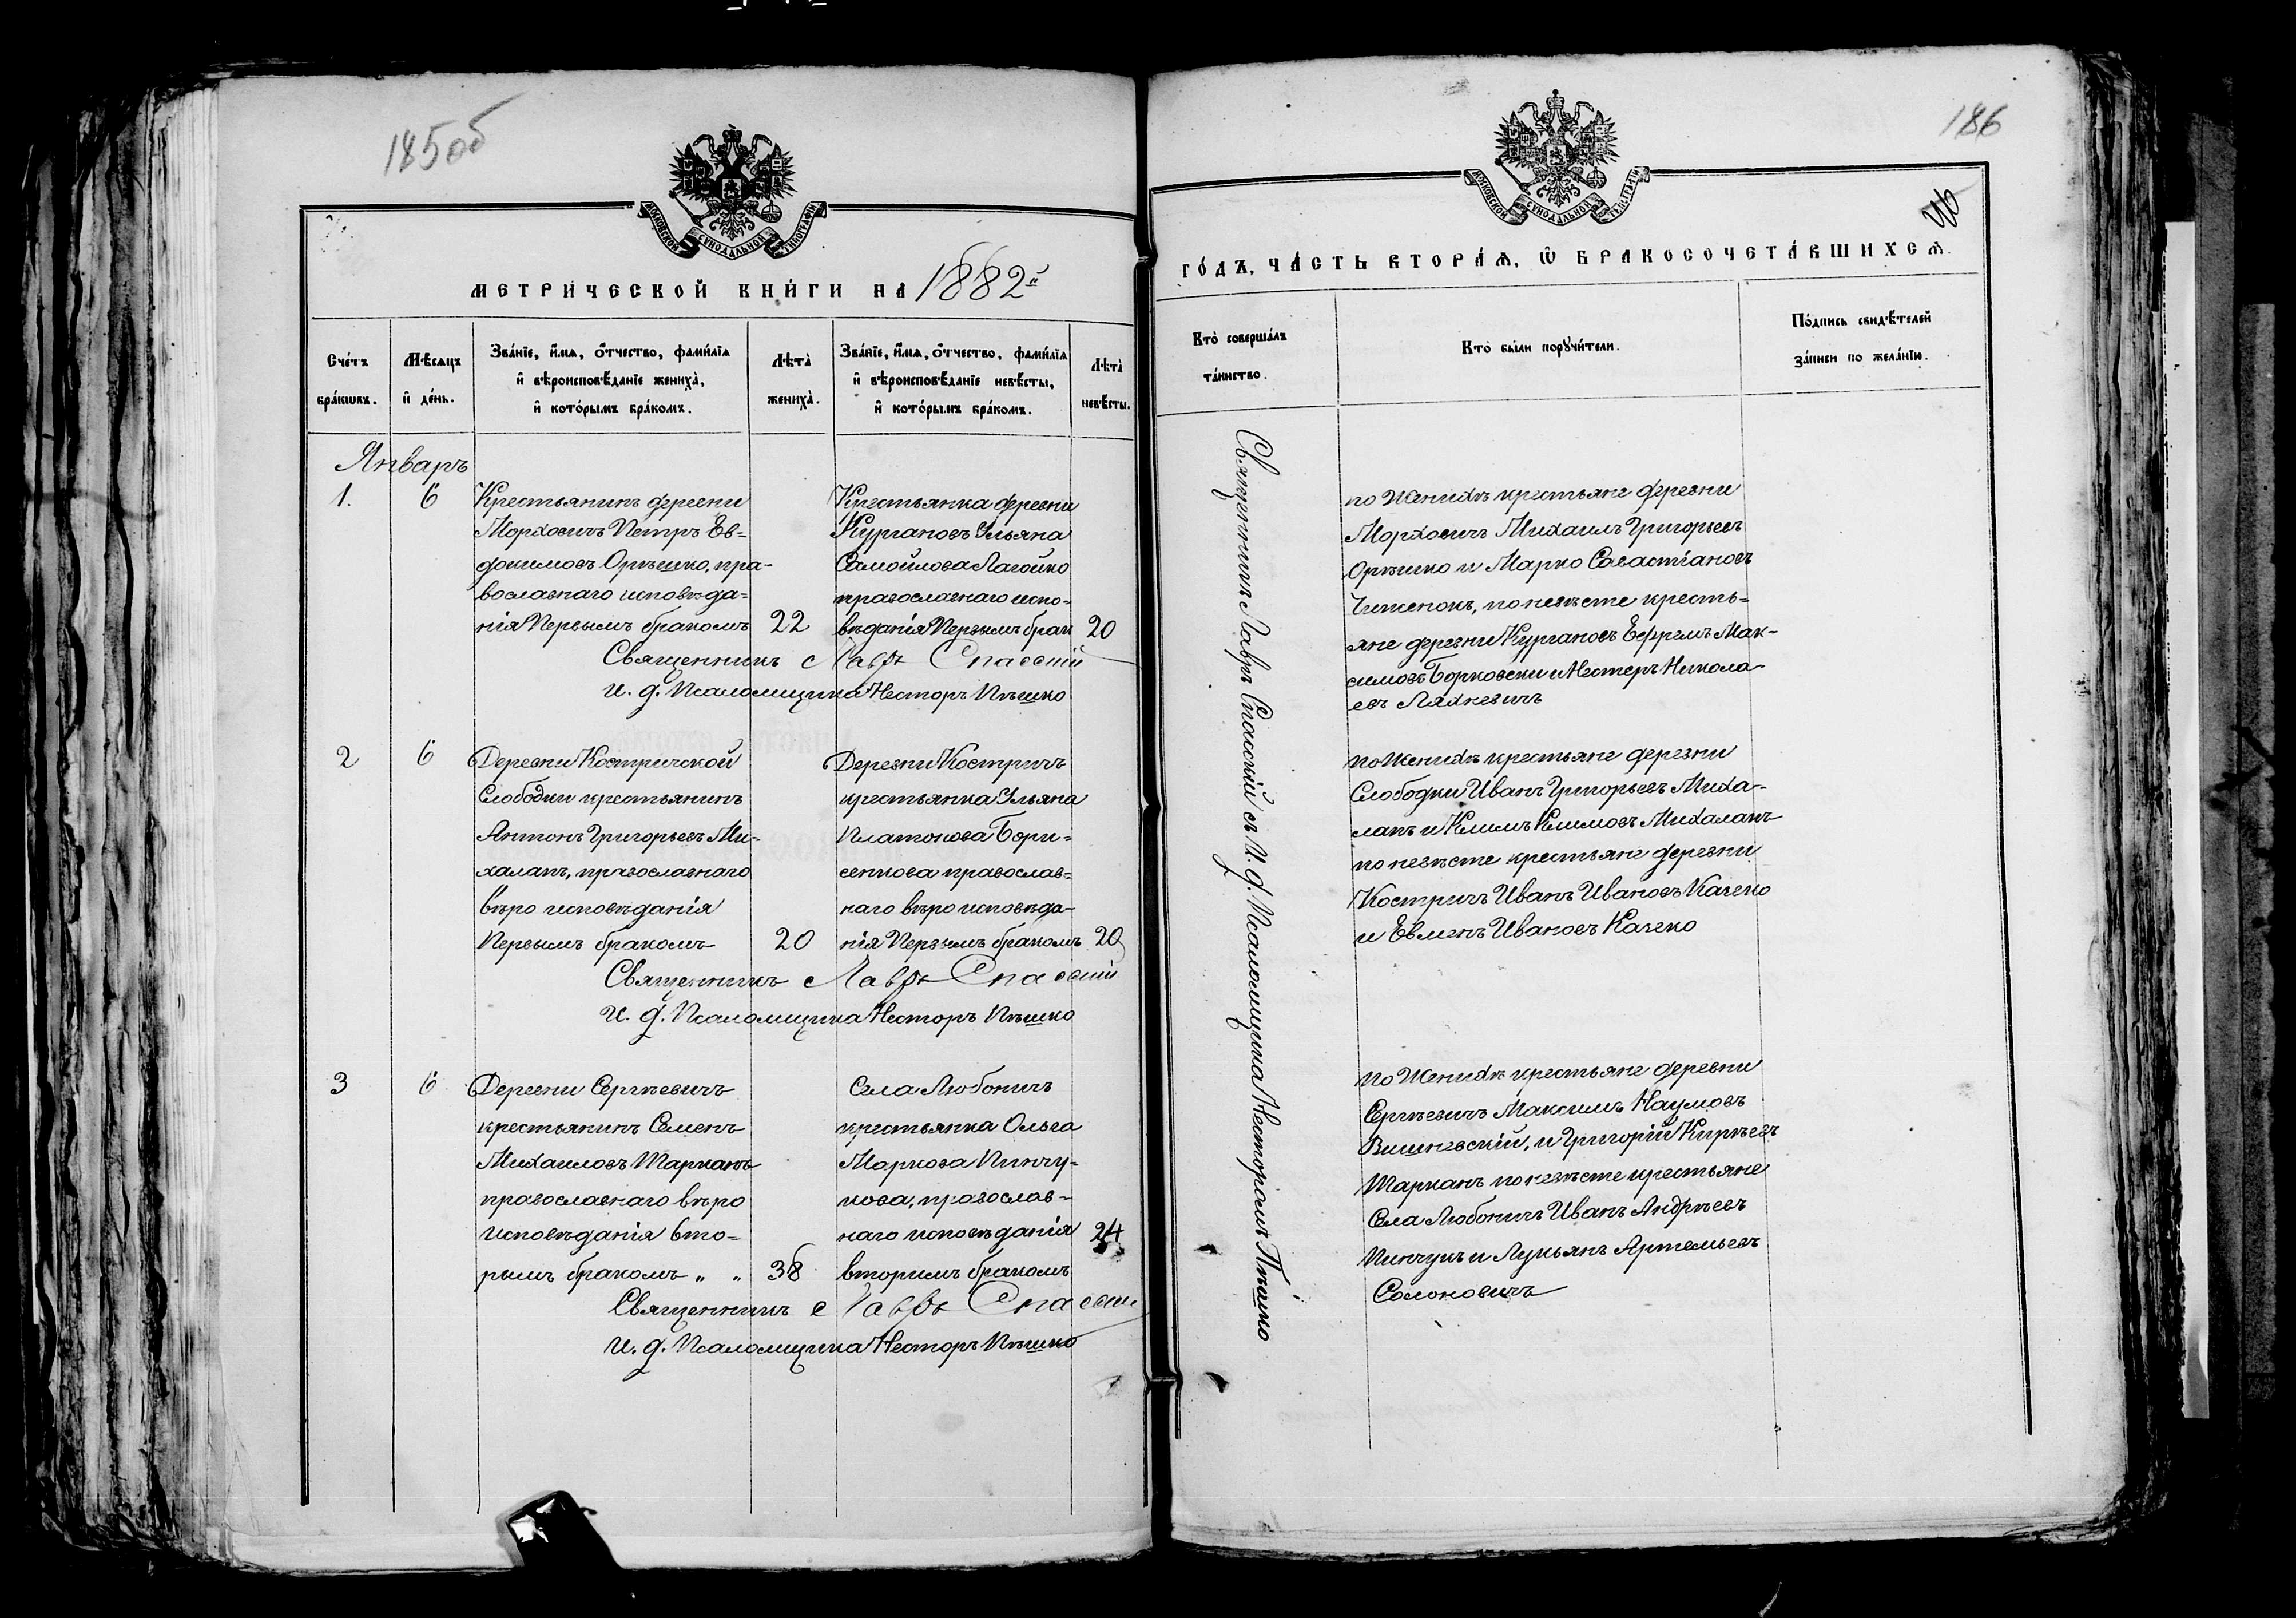 185об
МОСКОВСКОЙ СѴНОДАЛЬНОЙ ТИПОГРАФІИ
МЕТРИ́ЧЕСКОЙ КНИ́ГИ НА 1882й
Сче́тъ бра́кѡвъ.
Мѣ́сяцъ и҆ де́нь.
Зва́нїе, и҆́мѧ, ѻ҆́тчество, фами́лїѧ и҆ вѣроисповѣ́данїе жениха̀, и҆ кото́рымъ бра́комъ.
Лѣта̀ жениха̀.
Зва́нїе, и҆́мѧ, ѻ҆́тчество, фами́лїѧ и҆ вѣроисповѣ́данїе невѣ́сты, и҆ кото́рымъ бра́комъ.
Лѣта̀ невѣ́сты.
Январь
1.
6
Крестьянинъ деревни
Морховичъ Петръ Ев-
докимовъ Орѣшко, пра-
вославнаго исповѣда-
нія Первымъ бракомъ
22
Крестьянка деревни
Кургановъ Ульяна
Самойлова Лагойко
православнаго испо-
вѣданія Первымъ брак
20
Священникъ Лавръ Спасскій
и. д. Псаломщика Несторъ Пѣшко
2
6
Деревни Костричской
Слободки крестьянинъ
Антонъ Григорьевъ Ми-
халапъ, православнаго
вѣро исповѣданія
Первымъ бракомъ
20
Деревни Костричъ
крестьянка Ульяна
Платонова Бори-
сенкова православ-
наго вѣро исповѣда-
нія Первымъ бракомъ
20
Священникъ Лавръ Спасскій
и. д. Псаломщика Несторъ Пѣшко
3
6
Деревни Сергѣевичъ
крестьянинъ Семенъ
Михаиловъ Шарканъ
православнаго вѣро
исповѣданія вто-
рымъ бракомъ „ „
38
Села Любоничъ
крестьянка Ольга
Маркова Пинчу-
кова, православ-
наго исповѣданія
вторимъ бракомъ
24
Священникъ Лавръ Спасскій
и. д. Псаломщика Несторъ Пѣшко
186
МОСКОВСКОЙ СѴНОДАЛЬНОЙ ТИПОГРАФІИ
ГО́ДЪ, ЧА́СТЬ ВТОРА́Ѧ, Ѡ҆ БРАКОСОЧЕТА́ВШИХСѦ.
Кто̀ соверша́лъ та́инство.
Кто̀ бы́ли порꙋчи́тели.
По́дпись свидѣ́телей за́писи по жела́нїю.
Священникъ Лавръ Спасскій съ И. д. Псаломщика Несторомъ Пѣшко
по Женихѣ крестьяне деревни
Морховичъ Михаилъ Григорьевъ
Орѣшко и Марко Саватіановъ
Чиженокъ, по невѣсте кресть-
яне деревни Кургановъ Ефремъ Мак-
симовъ Борковски и Нестеръ Никола-
евъ Ляхневичъ
по Женихѣ крестьяне деревни
Слободки Иванъ Григорьевъ Миха-
лапъ и Климъ Климовъ Михалапъ
по невѣсте крестьяне деревни
Костричъ Иванъ Ивановъ Качеко
и Евменъ Ивановъ Качеко
по Женихѣ крестьяне деревни
Сергѣевичъ Максимъ Наумовъ
Вишневскій, и Григорій Кирѣевъ
Шарканъ по невѣсте крестьяне
Села Любоничъ Иванъ Андрѣевъ
Пинчукъ и Лукьянъ Артемьевъ
Солоновичъ